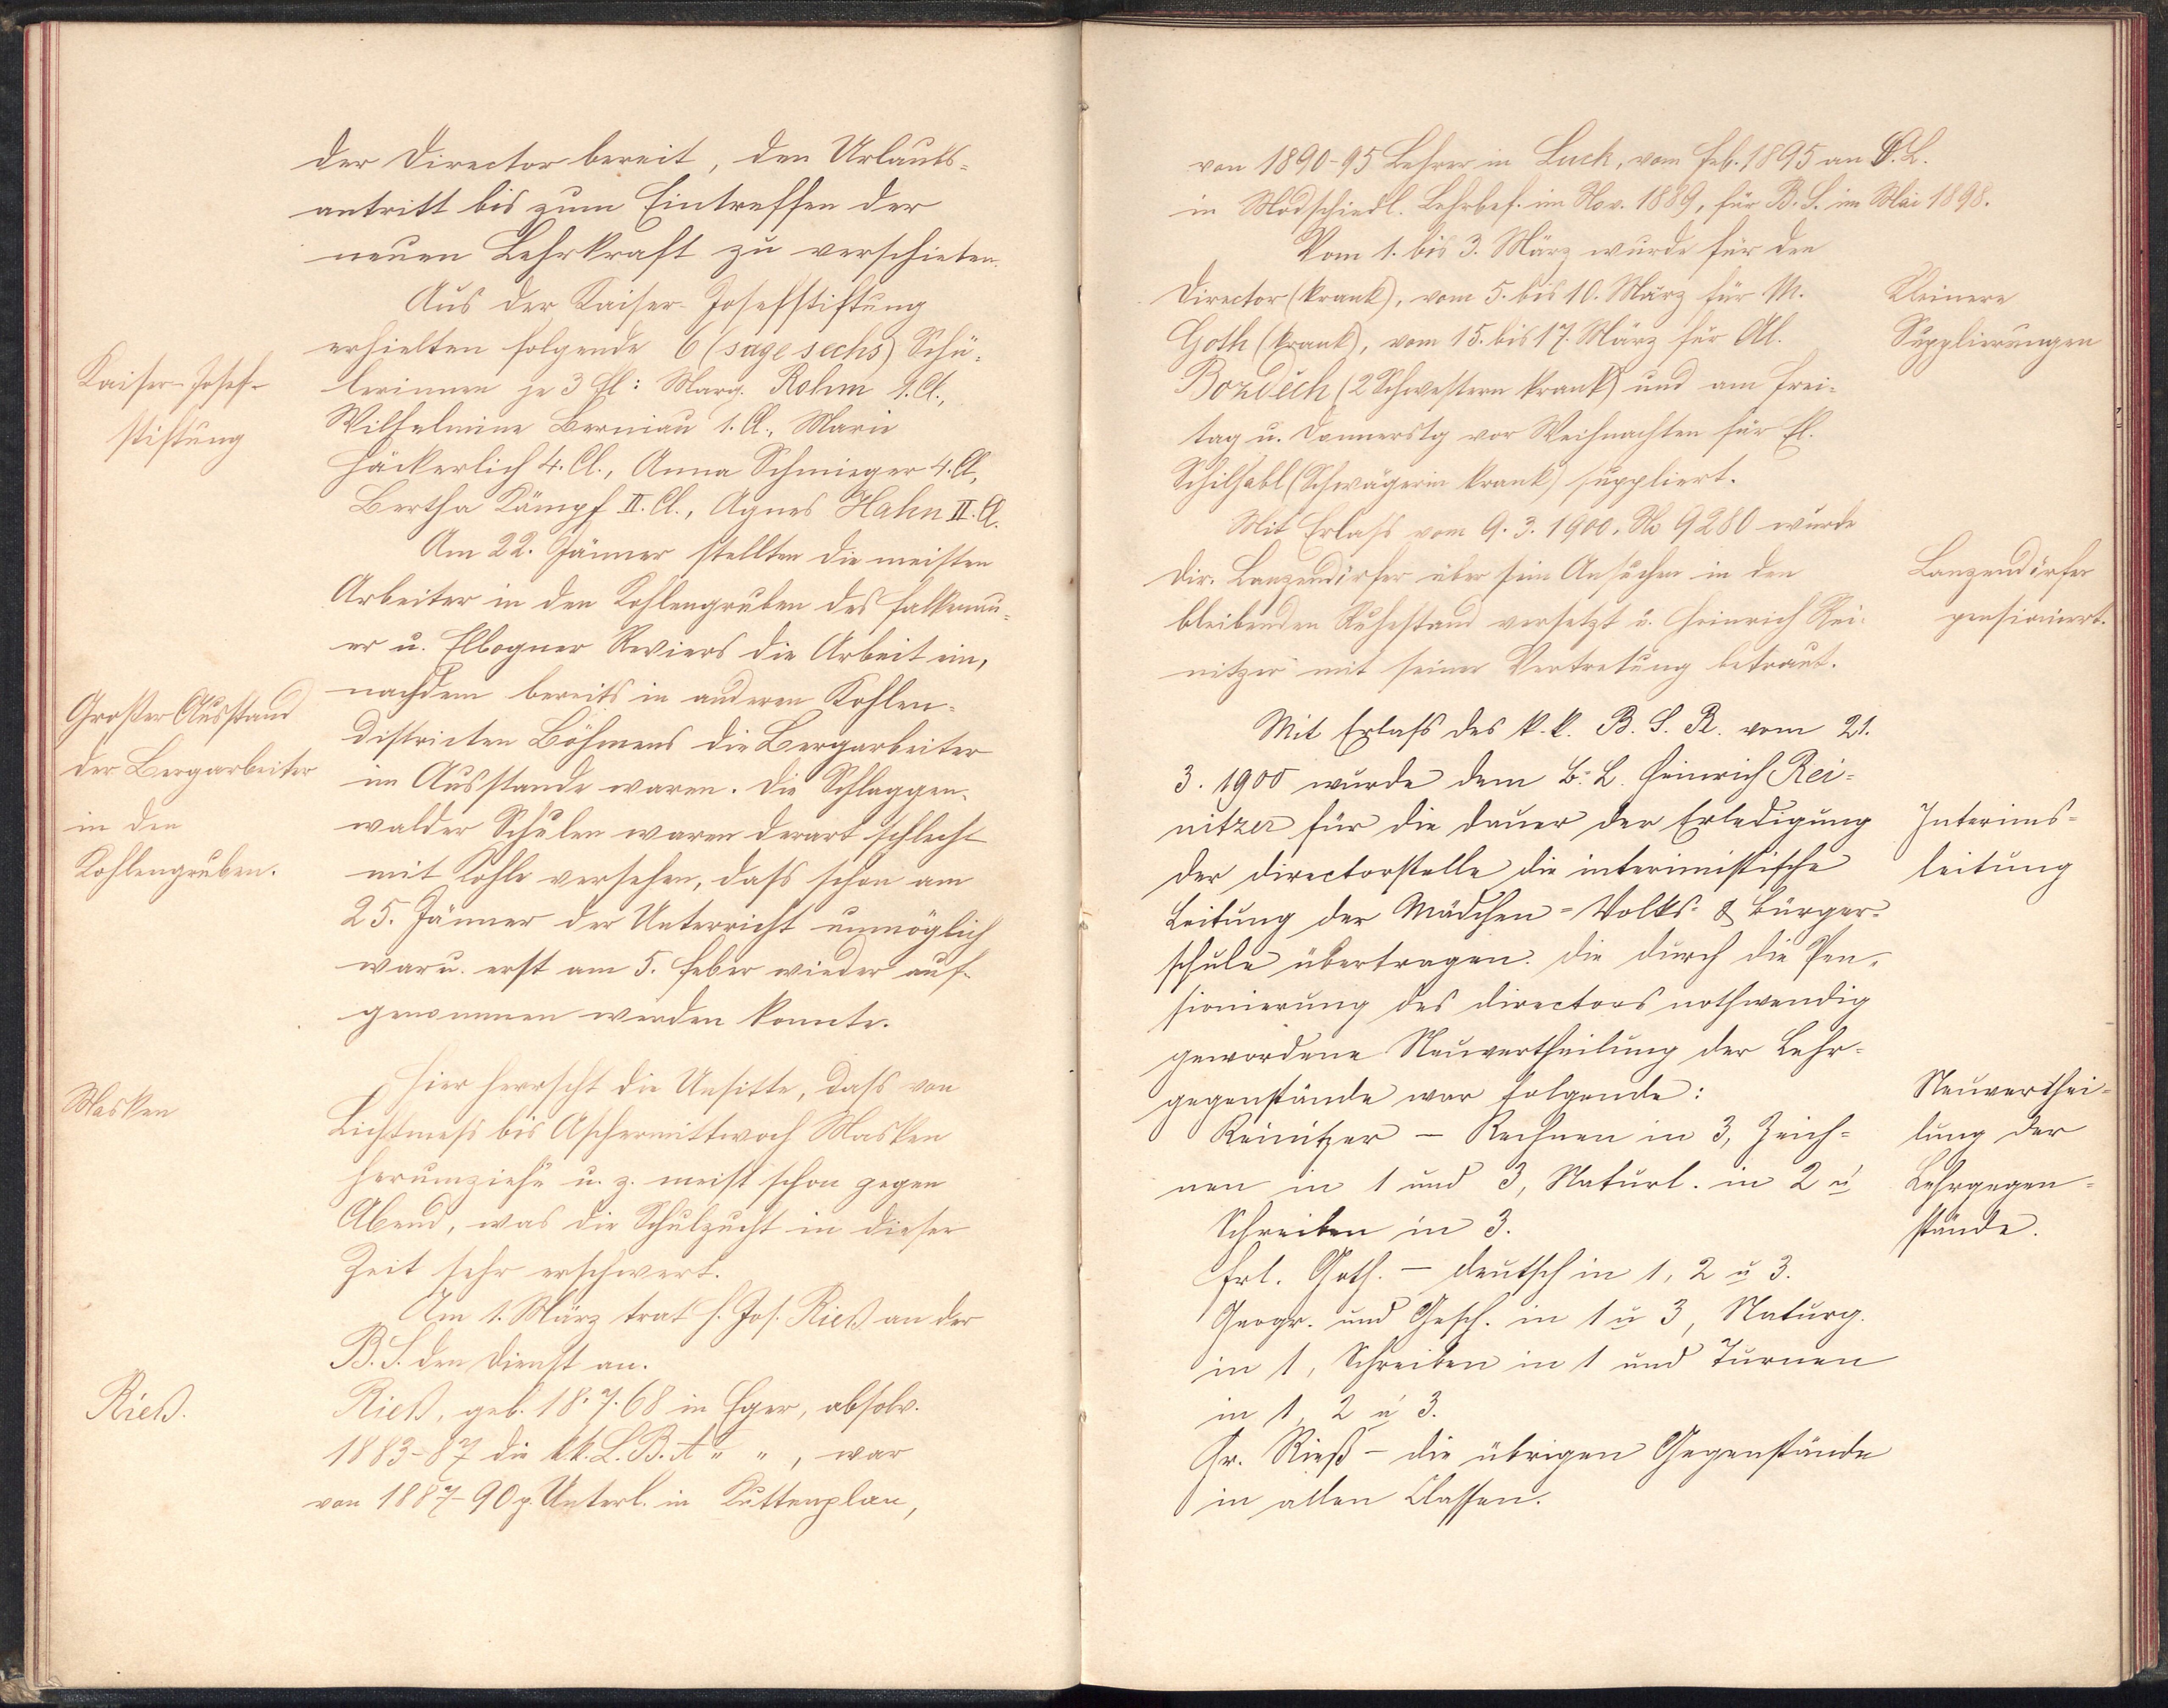 der Director bereit, den Urlaubs-
antritt bis zum Eintreffen der
neuen Lehrkraft zu verschieben.
Kaiser-Josef-
stiftung
Aus der Kaiser-Josefstiftung
erhielten folgende 6 (sage sechs) Schü-
lerinnen je 3 fl: Marg. Rohm 1. Cl.,
Wilhelmine Berniau 1. Cl., Marie
Häckerlich 4. Cl., Anna Schmieger 4. Cl.,
Bertha Kämpf II. Cl., Agnes Hahn II. Cl.
Großer Ausstand
der Bergarbeiter
in den
Kohlengruben.
Am 22. Jänner stellten die meisten
Arbeiter in den Kohlengruben des Falkenau-
er u. Elbogner Reviers die Arbeit ein,
nachdem bereits in anderen Kohlen-
districten Böhmens die Bergarbeiter
im Ausstande waren. Die Schlaggen-
walder Schulen waren derart schlecht
mit Kohle versehen, dass schon am
25. Jänner der Unterricht unmöglich
war u. erst am 5. Feber wieder auf-
genommen werden konnte.
Masken
Hier herrscht die Unsitte, dass von
Lichtmess bis Aschermittwoch Masken
herumziehn u. z. meist schon gegen
Abend, was die Schulzucht in dieser
Zeit sehr erschwert.
Am 1. März trat H. Jos. Rieß an der
B. S. den Dienst an.
Rieß.
Rieß, geb. 18. 7. 68 in Eger, absolv.
1883-87 die k.k. L. B. A " " , war
von 1887-90 p. Unterl. in Kuttenplan,
von 1890-95 Lehrer in Luck, vom Feb. 1895 an O. L.
in Modschiedl. Lehrbef. im Nov. 1889, für B. S. im Mai 1898.
Kleinere
Supplierungen
Vom 1. bis 3. März wurde für den
Director (krank), vom 5. bis 10. März für M.
Goth (krank), vom 15. bis 17. März für Al.
Bozdech (2 Schwestern krank) und am Frei-
tag u. Donnerstg vor Weihnachten für El.
Schilhabl (Schwägerin krank) suppliert.
Lanzendörfer
pensioniert.
Mit Erlass vom 9. 3. 1900. No 9280 wurde
Dir. Lanzendörfer über sein Ansuchen in den
bleibenden Ruhestand versetzt u. Heinrich Rei-
nitzer mit seiner Vertretung betraut.
Interims-
leitung
Mit Erlass des k. k. B. S. R. vom 21.
3. 1900 wurde dem B. L. Heinrich Rei-
nitzer für die Dauer der Erledigung
der Directorstelle die interimistische
Leitung der Mädchen-Volks- & Bürger-
schule übertragen. Die durch die Pen-
sionierung des Directors nothwendig
gewordene Neuvertheilung der Lehr-
gegenstände war folgende:
Neuverthei-
lung der
Lehrgegen-
stände.
Reinitzer – Rechnen in 3, Zeich-
nen in 1 und 3, Naturl. in 2 u
Schreiben in 3.
Frl. Goth. – Deutsch in 1, 2 u 3.
Geogr. und Gesch. in 1 u 3, Naturg.
in 1, Schreiben in 1 und Turnen
in 1, 2 u 3.
Hr. Rieß – die übrigen Gegenstände
in allen Classen.